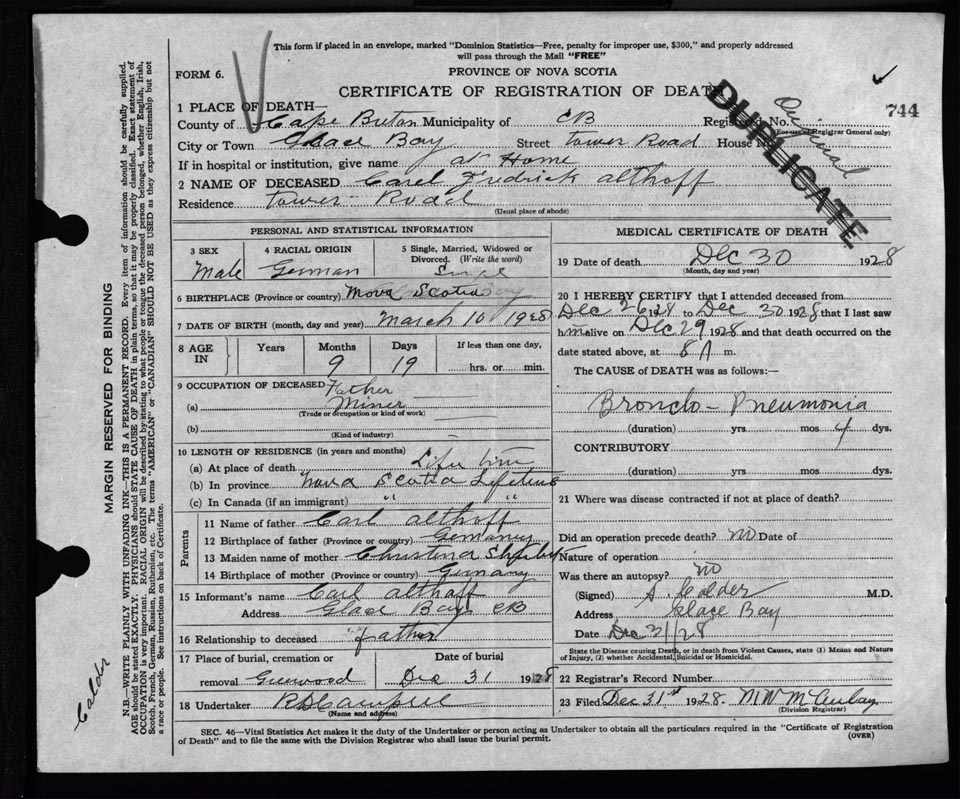 This form if placed in an envelope, marked "Dominion Statistics—Free, penalty for improper use, $300," and properly addressed
will pass through the Mail "FREE"
FORM 6.
PROVINCE OF NOVA SCOTIA
CERTIFICATE OF REGISTRATION OF DEATH
DUPLICATE
744
1 PLACE OF DEATH—
County of Cape Breton Municipality of CB Registered No.
(For use of Registrar General only)
City or Town Glace Bay Street Tower Road House No.
If in hospital or institution, give name at Home
2 NAME OF DECEASED Carel Fredrick Althoff
Residence Tower Road
(Usual place of abode)
PERSONAL AND STATISTICAL INFORMATION
3 SEX Male
4 RACIAL ORIGIN German
5 Single, Married, Widowed or Divorced. (Write the word)
6 BIRTHPLACE (Province or country) Nova Scotia
7 DATE OF BIRTH (month, day and year) March 10 1928
8 AGE IN Years Months 9 Days 19 If less than one day, hrs. or min.
9 OCCUPATION OF DECEASED Father
(a) Miner
(Trade or occupation or kind of work)
(b)
(Kind of industry)
10 LENGTH OF RESIDENCE (in years and months)
(a) At place of death Life time
(b) In province Nova Scotia Lifetime
(c) In Canada (if an immigrant) " "
Parents
11 Name of father Carl Althoff
12 Birthplace of father (Province or country) Germany
13 Maiden name of mother Christina
14 Birthplace of mother (Province or country) Germany
15 Informant's name Carl Althoff
Address Glace Bay CB
16 Relationship to deceased father
17 Place of burial, cremation or removal Greenwood
Date of burial Dec 31 1928
18 Undertaker
(Name and address)
MEDICAL CERTIFICATE OF DEATH
19 Date of death Dec 30 1928
(Month, day and year)
20 I HEREBY CERTIFY that I attended deceased from
Dec 26 1928 to Dec 30 1928 that I last saw
him alive on Dec 29 1928 and that death occurred on the
date stated above, at 8 A m.
The CAUSE of DEATH was as follows:—
Broncho-Pneumonia
(duration) yrs mos 4 dys.
CONTRIBUTORY
(duration) yrs. mos. dys.
21 Where was disease contracted if not at place of death?
Did an operation precede death? no Date of
Nature of operation
Was there an autopsy? no
(Signed) A. Calder M.D.
Address Glace Bay
Date Dec 31/28
State the Disease causing Death, or in death from Violent Causes, state (1) Means and Nature
of Injury, (2) whether Accidental, Suicidal or Homicidal.
22 Registrar's Record Number
23 Filed Dec 31st 1928.
(Division Registrar)
SEC. 46—Vital Statistics Act makes it the duty of the Undertaker or person acting as Undertaker to obtain all the particulars required in the "Certificate of Registration
of Death" and to file the same with the Division Registrar who shall issue the burial permit.
(OVER)
MARGIN RESERVED FOR BINDING
N.B.—WRITE PLAINLY WITH UNFADING INK—THIS IS A PERMANENT RECORD. Every item of information should be carefully supplied.
AGE should be stated EXACTLY. PHYSICIANS should STATE CAUSE OF DEATH in plain terms, so that it may be properly classified. Exact statement of
OCCUPATION is very important. RACIAL ORIGIN will be described by stating to what people or tongue the deceased person belonged, whether English, Irish,
Scotch, French, German, Russian, Ruthenian, etc. The terms "AMERICAN" or "CANADIAN" SHOULD NOT BE USED as they express citizenship but not
a race or people. See instructions on back of Certificate.
Calder